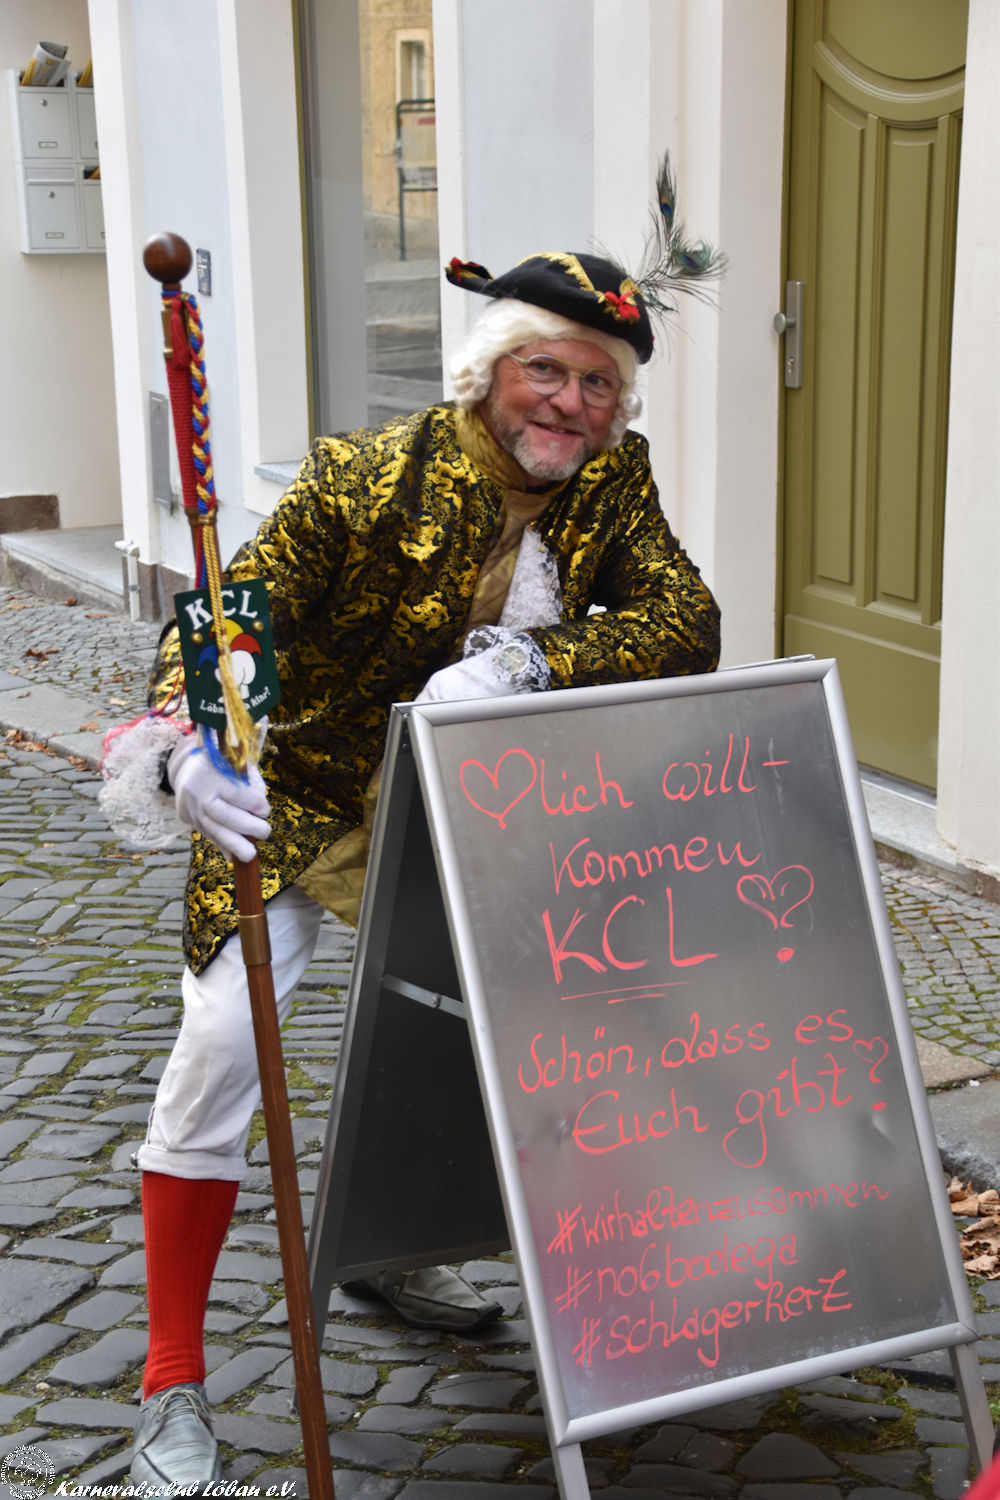 KCL
Löba
klar!
♡lich will-
kommen
KCL ♡!
Schön, dass es
Euch gibt!
#wirhaltenzusammen
#no6bodega
#schlagerherz
Karnevalsclub Löbau e.V.